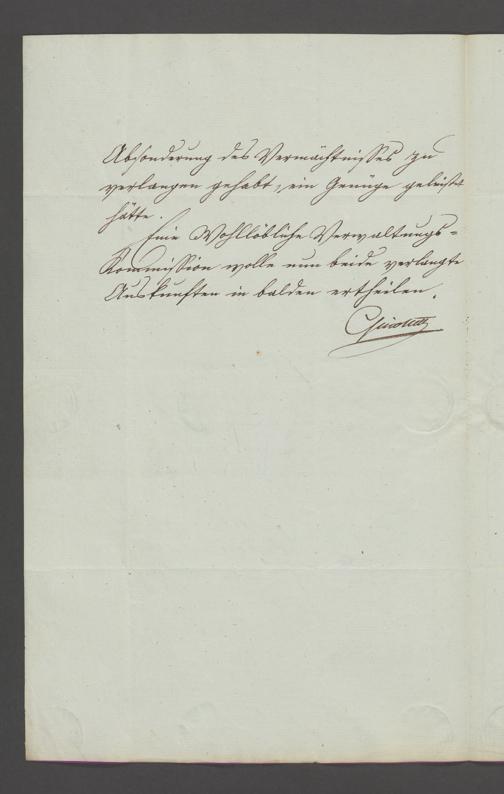 Absonderung des Vermächtnisses zu
verlangen gehabt, ein Genüge geleistet
hätte.
Eine Wohllöbliche Verwaltungs-
Kommission wolle nun beide verlangte
Auskunften in balden ertheilen.